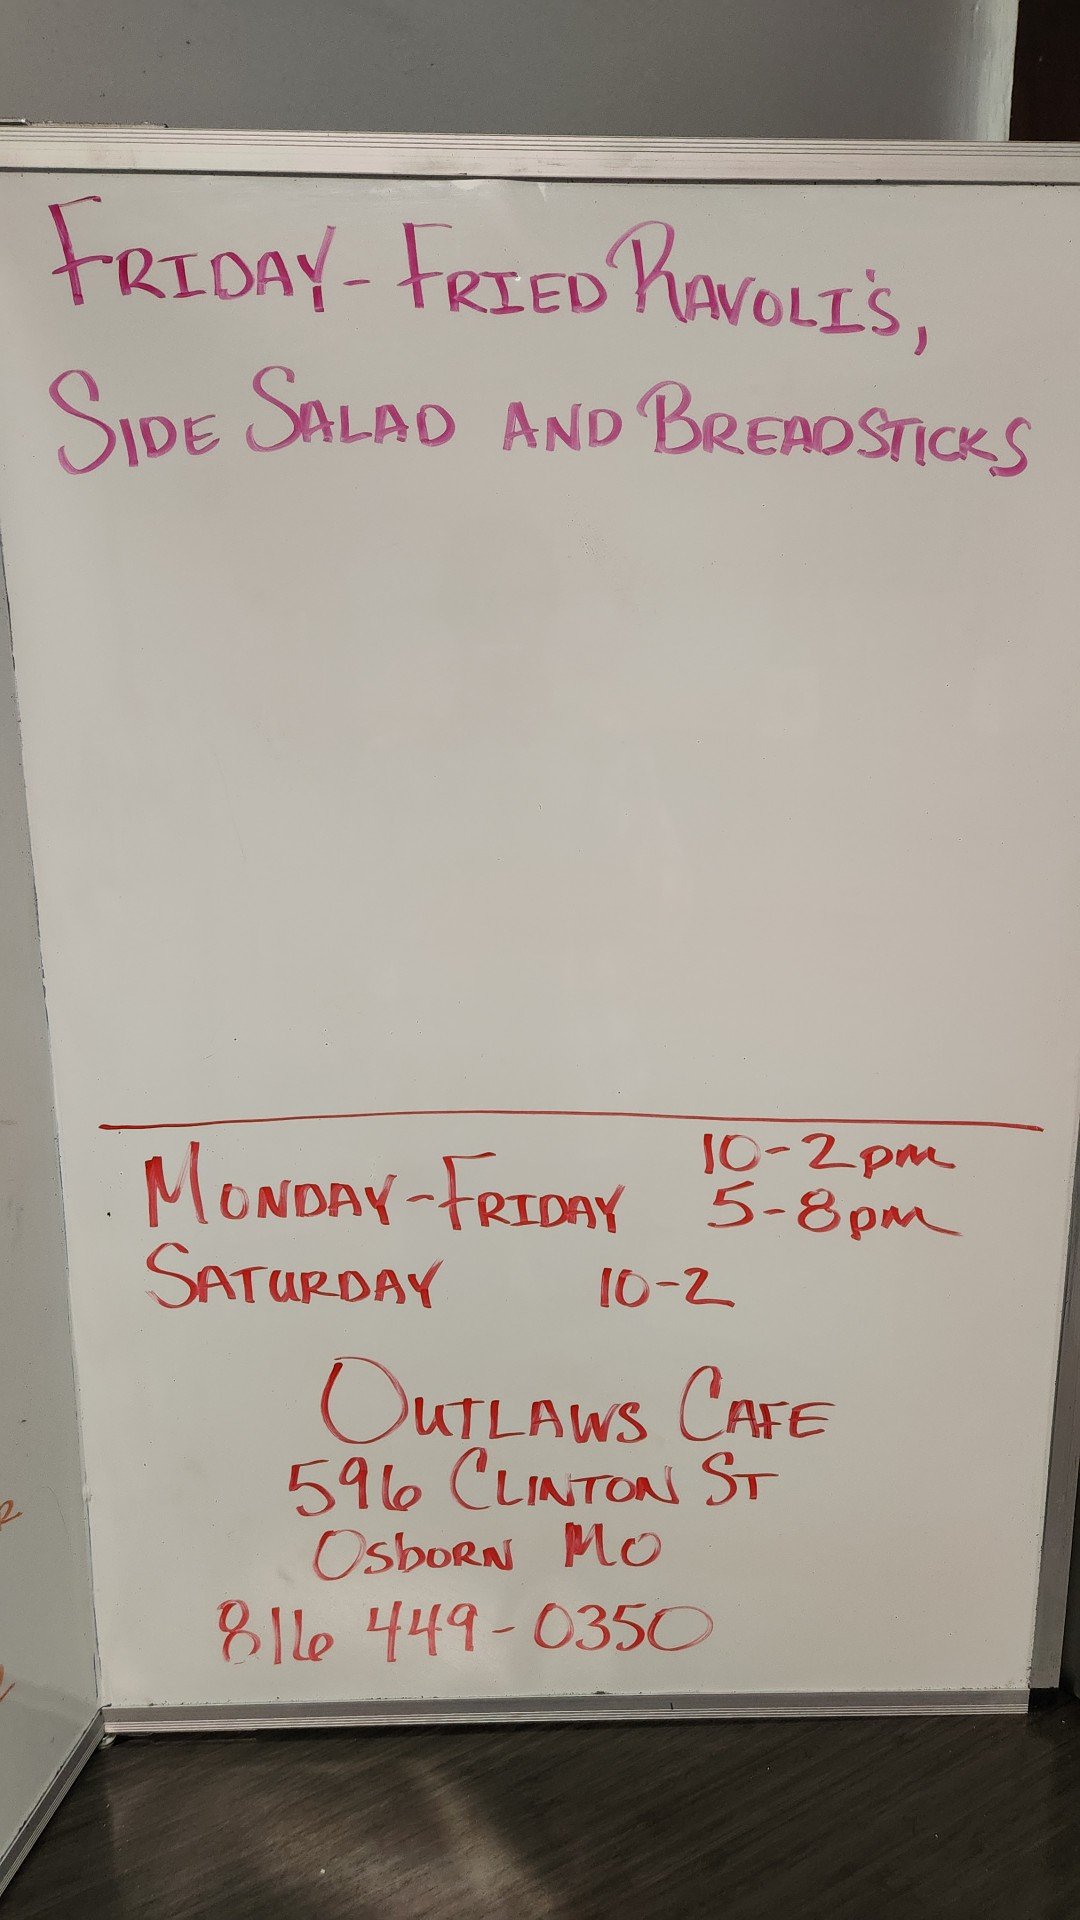 FRIDAY - FRIED RAVOLI'S,
SIDE SALAD AND BREADSTICKS
MONDAY-FRIDAY 10-2pm
5-8pm
SATURDAY 10-2
OUTLAWS CAFE
596 CLINTON ST
OSbORN MO
816 449-0350